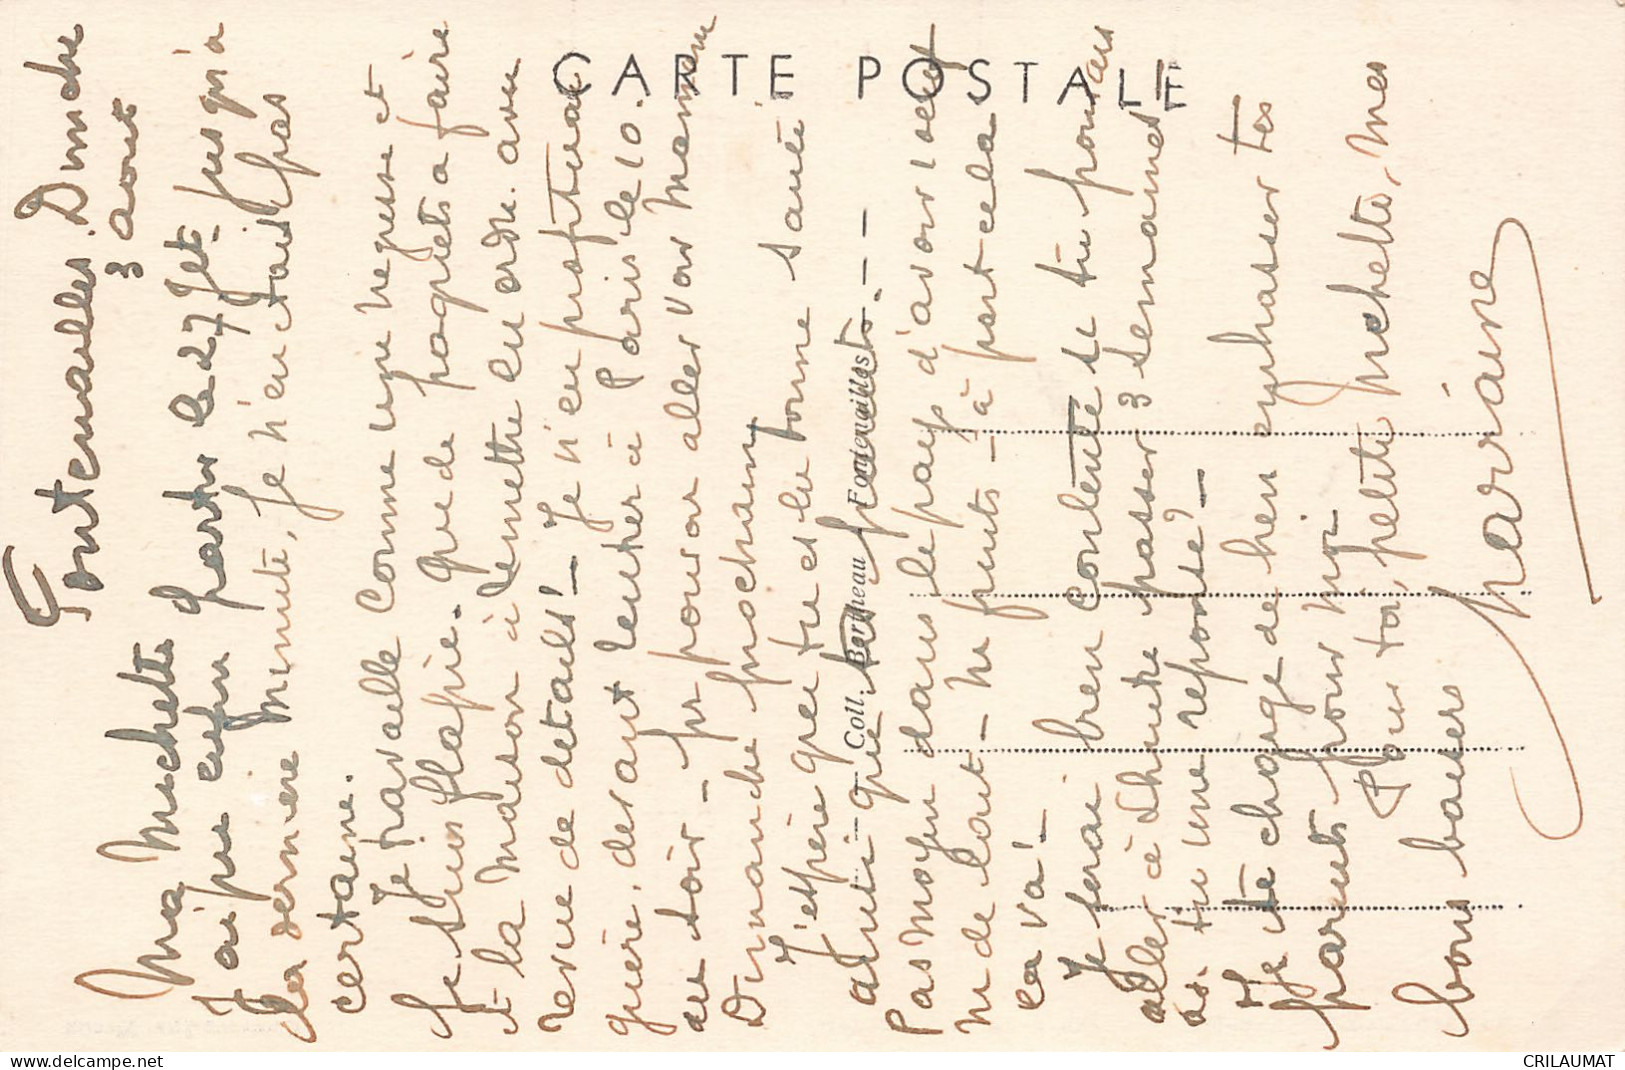 CARTE POSTALE
Coll. Bertheau Fontenailles
Fontenailles. Dimche
3 aout
Ma Michette
J'ai pu enfin partir le 27 Jet. jusqu'à
la dernière minute, je n'en étais pas
certaine.
Je travaille comme une negresse et
je suis flapie. que de paquets à faire
et la maison à remettre en ordre. avec
revue de détails! - Je n'en profiterai
guère, devant rentrer à Paris le 10.
au soir - pr pouvoir aller voir Maman
Dimanche prochain
J'espère que tu es en bonne santé
ainsi que tes parents. - - -
Pas moyen dans le pays d'avoir oeuf
ni de lait - ni fruits - à part cela
ca va! -
Je serai bien contente si tu pouvais
aller à passer 3 semaines
as-tu une réponse? -
Je te charge de bien embrasser tes
parents pour moi
Pour toi, petite Michette, mes
bons baisers
Marraine
delcampe.net
CRILAUMAT